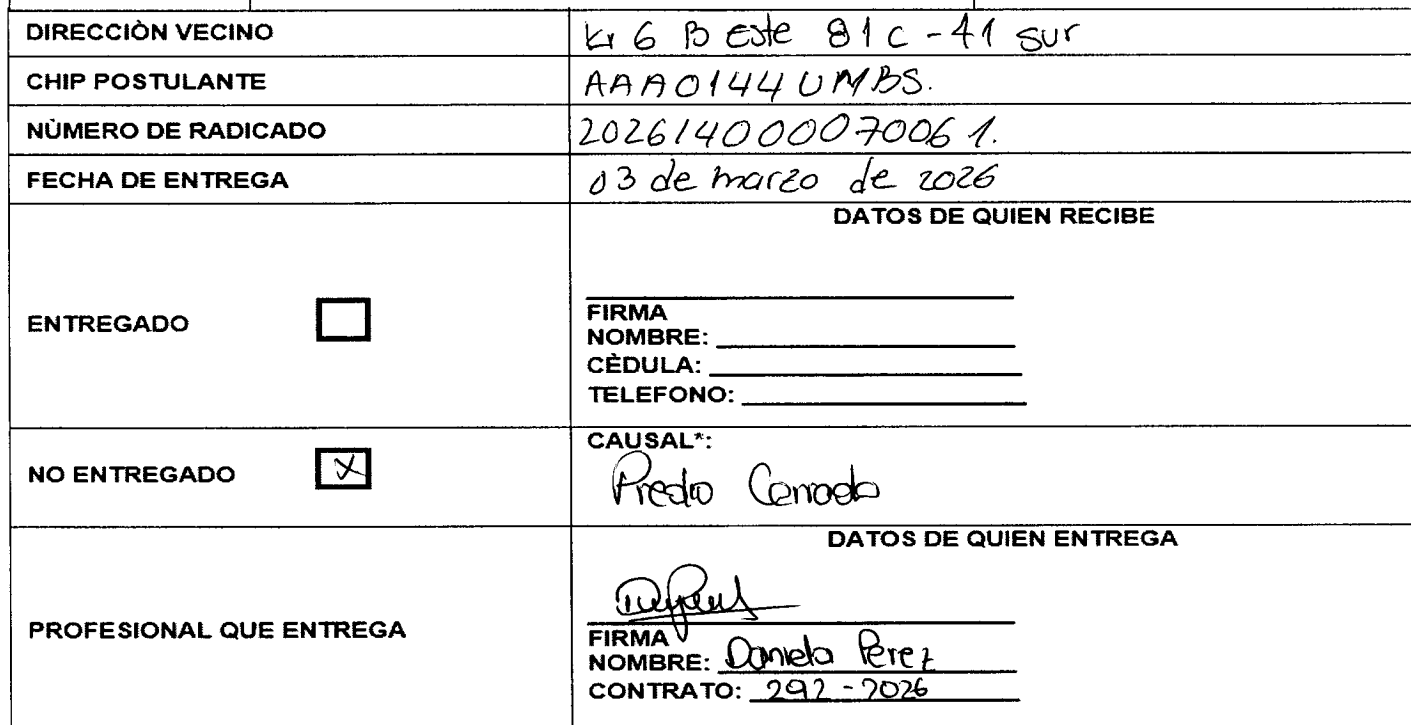 DIRECCIÒN VECINO Kr 6 B Este 81 C - 41 Sur
CHIP POSTULANTE AAA0144UMBS.
NÙMERO DE RADICADO 20261400007006 1.
FECHA DE ENTREGA 03 de marzo de 2026
DATOS DE QUIEN RECIBE
ENTREGADO
FIRMA
NOMBRE:
CÈDULA:
TELEFONO:
NO ENTREGADO X
CAUSAL*:
Predio Cerrado
DATOS DE QUIEN ENTREGA
PROFESIONAL QUE ENTREGA
FIRMA
NOMBRE: Daniela Pérez
CONTRATO: 292 - 2026